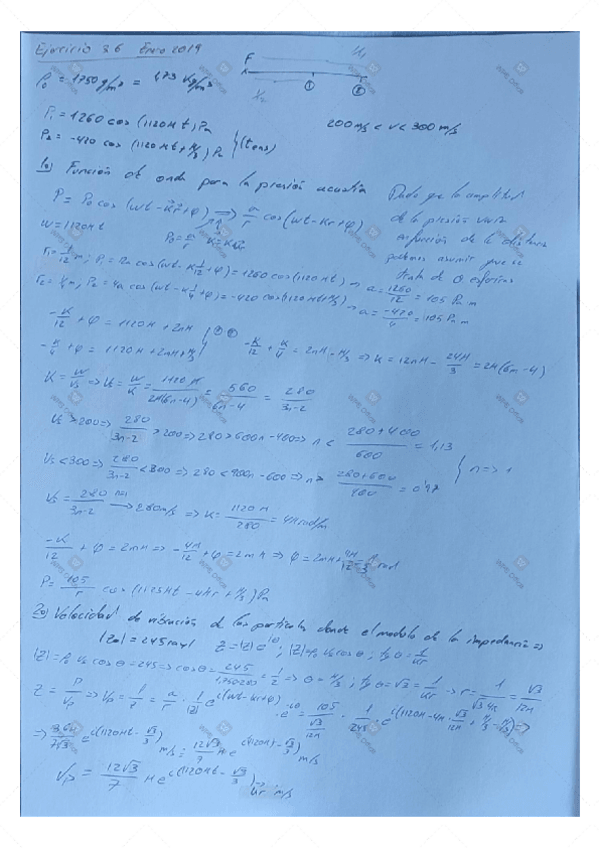 Ejercicio 26 Enero 2019
P₀ = 1750 g/m³ = 1,73 kg/m³
P₁ = 1260 cos (1120πt) Pa
P₂ = -420 cos (1120πt + π/3) Pa } (t en s)
200 m/s < v < 300 m/s
1º) Función de onda para la presión acústica
P = P₀ cos (ωt - k⃗r⃗ + φ) ⟹ a/r cos (ωt - kr + φ)
Dado que la amplitud
de la presión varía
en función de la distancia
podemos asumir que se
trata de O esféricas
ω = 1120π
P₀ = a/r
r₁ = 1/12 m; P₁ = 12a cos (ωt - k 1/12 + φ) = 1260 cos (1120πt) → a = 1260/12 = 105 Pa m
r₂ = 1/4 m; P₂ = 4a cos (ωt - k 1/4 + φ) = -420 cos (1120πt + π/3) → a = -420/4 = 105 Pa m
-k/12 + φ = 1120π + 2πn
-k/4 + φ = 1120π + 2πn + π/3
-k/12 + k/4 = 2πn - π/3 ⟹ k = 12πn - 24π/3 = 2π(6n-4)
k = ω/vs ⟹ vs = ω/k = 1120π/2π(6n-4) = 560/6n-4 = 280/3n-2
vs > 200 ⟹ 280/3n-2 > 200 ⟹ 280 > 600n - 400 ⟹ n < 280+400/600 = 1,13
vs < 300 ⟹ 280/3n-2 < 300 ⟹ 280 < 900n - 600 ⟹ n > 280+600/900 = 0'97 } n ⟹ 1
vs = 280/3n-2 → 280 m/s ⟹ k = 1120π/280 = 4π rad/m
-k/12 + φ = 2πn ⟹ -4π/12 + φ = 2πn ⟹ φ = 2πn + 4π/12 = π/3 rad
P = 105/r cos (1125πt - 4πr + π/3) Pa
2º) Velocidad de vibración de las partículas donde el modulo de la impedancia ⟹
|Za| = 245 rayl Z = |Z| e^iθ; |Z| = ρ₀ vs cos θ; tg θ = 1/kr
|Z| = ρ₀ vs cos θ = 245 ⟹ cos θ = 245/1,750·280 = 1/2 ⟹ θ = π/3; tg θ = √3 = 1/kr → r = 1/√3 4π = √3/12π
Z = P/vp ⟹ vp = P/Z = a/r · 1/|Z| e^i(ωt - kr + φ) · e^-iθ = 105/(√3/12π) · 1/245 · e^i(1120π - 4π · √3/12π + π/3 - π/3) ⟹
e^i(1120πt - √3/3) m/s = 12√3/7 π e^i(1120πt - √3/3) m/s
vp = 12√3/7 π e^i(1120πt - √3/3) u⃗r m/s